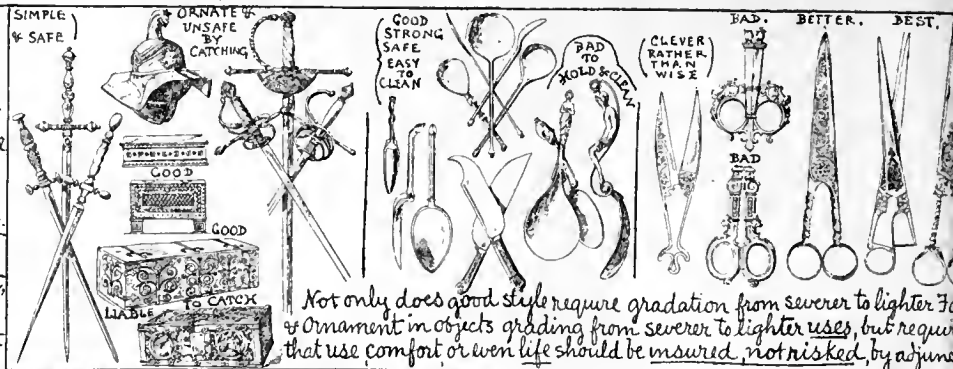 SIMPLE
& SAFE
ORNATE &
UNSAFE
BY
CATCHING
GOOD
GOOD
LIABLE
TO CATCH
GOOD
STRONG
SAFE
EASY
TO
CLEAN
BAD
TO
HOLD & CLEAN
CLEVER
RATHER
THAN
WISE
BAD.
BAD
BETTER.
BEST.
Not only does good style require gradation from severer to lighter Fo
& Ornament in objects grading from severer to lighter uses, but requir
that use, comfort, or even life should be insured, not risked, by adjunc